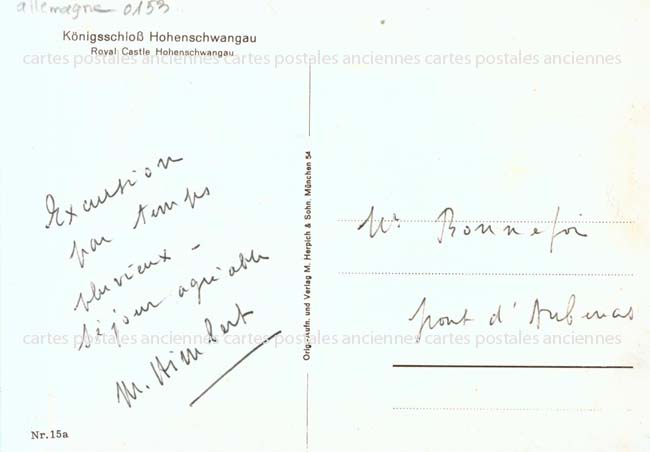 allemagne 0153
Königsschloß Hohenschwangau
Royal Castle Hohenschwangau
cartes postales anciennes cartes postales anciennes cartes postales anciennes
Excursion
par temps
pluvieux -
séjour agréable
M. Himbert
Orig.-Aufn. und Verlag M. Herpich & Sohn, München 54
Mr Bonnefoi
pont d'Aubenas
cartes postales anciennes cartes postales anciennes cartes postales anciennes
Nr. 15a